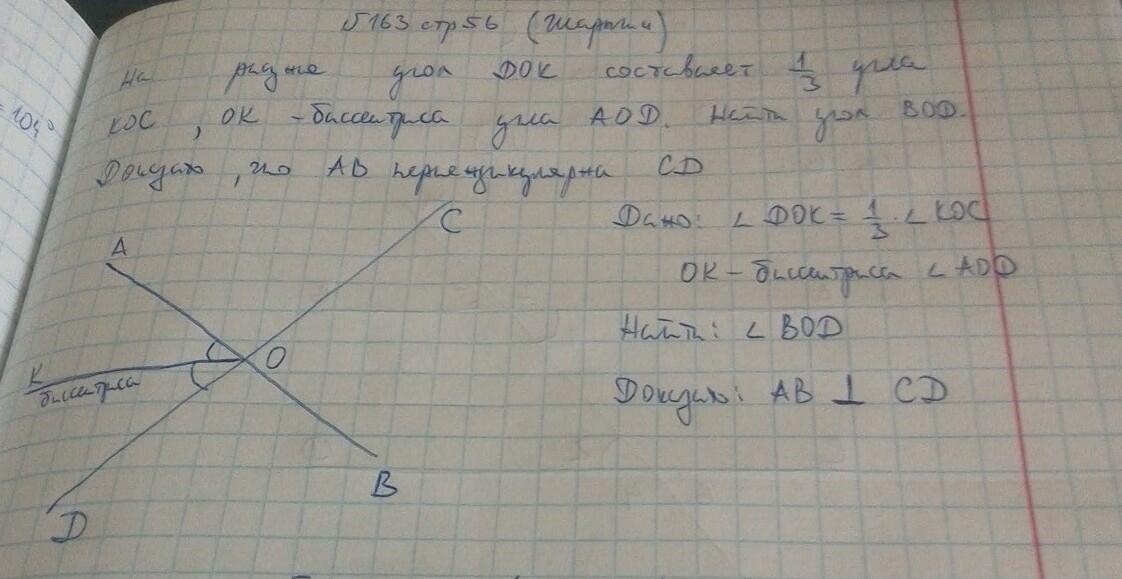 №163 стр 56 (Шарыгин)
На рисунке угол DOK составляет 1/3 угла
KOC, OK - биссектриса угла AOD. Найти угол BOD.
Доказать, что AB перпендикулярна CD
Дано: ∠ DOK = 1/3 · ∠ KOC
OK - биссектриса ∠ AOD
Найти: ∠ BOD
Доказать: AB ⊥ CD
A
C
K
O
биссектриса
B
D
= 104°